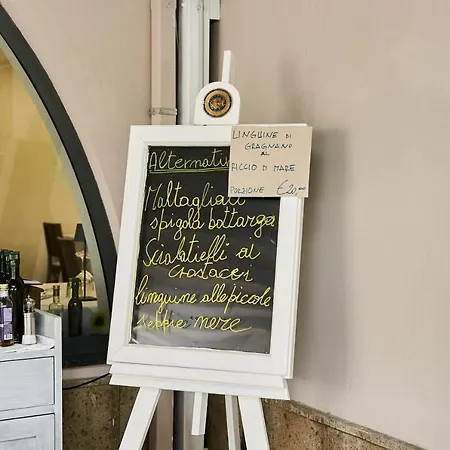 LINGUINE DI
GRAGNANO
AL
RICCIO DI MARE
PORZIONE €20,00
Alternativ
Maltagliati
spigola bottarga
Scialatielli ai
crostacei
linguine alle piccole
seppie nere